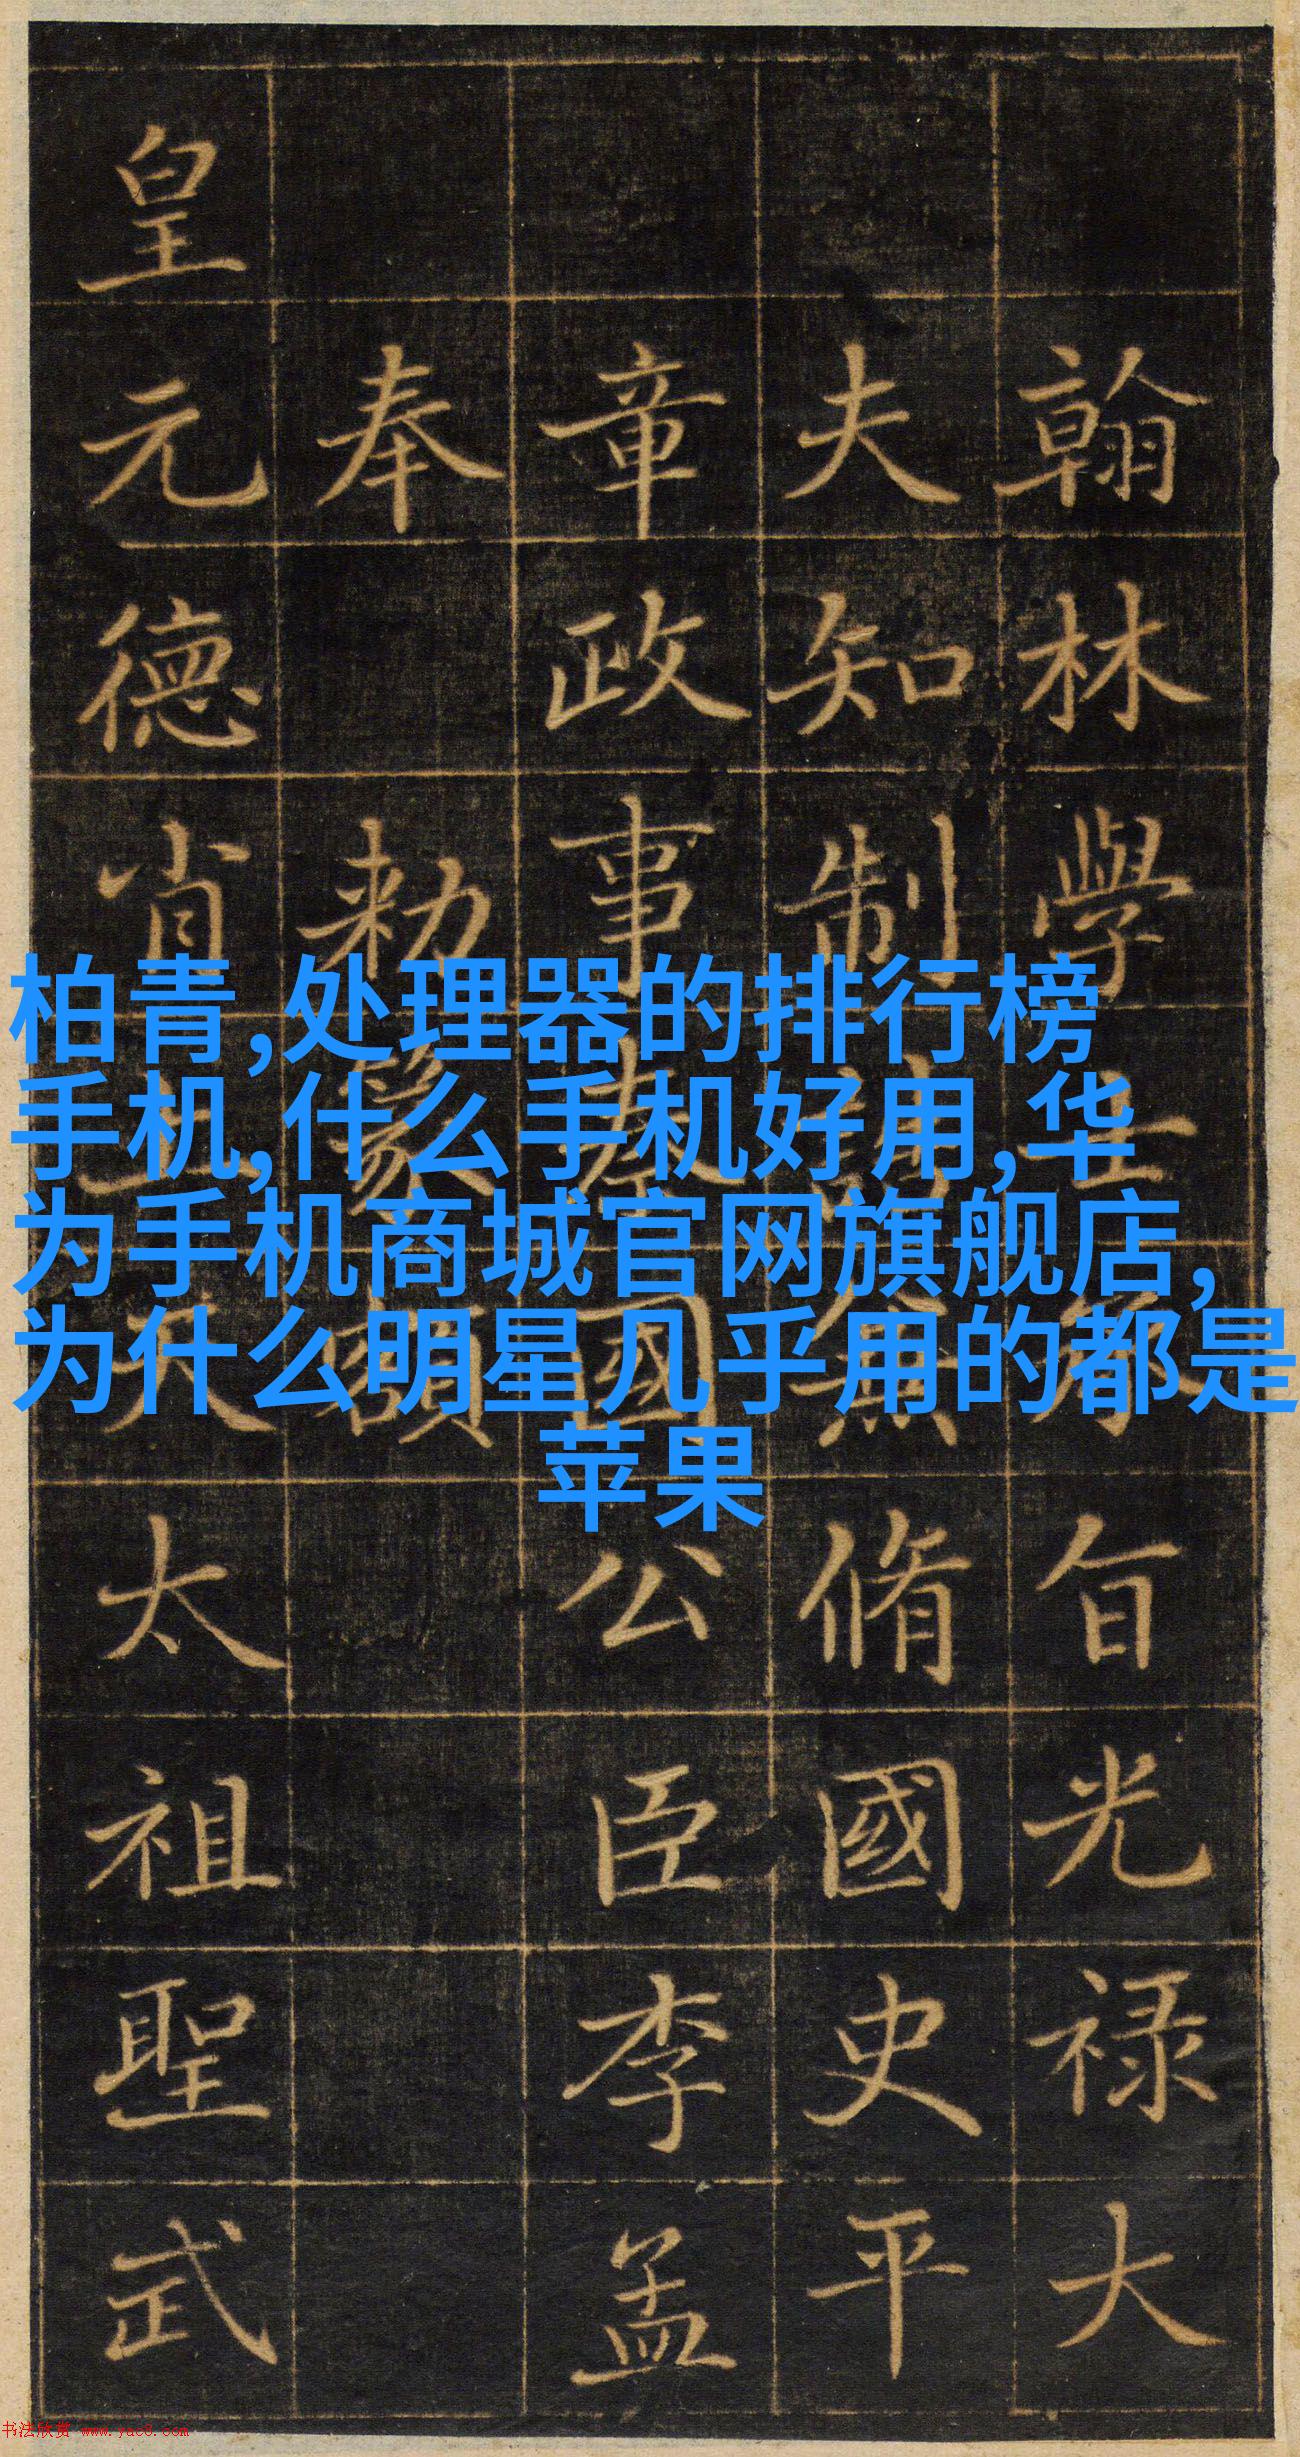 翰林學士旨光禄大
夫知制誥脩國史平
章政事秦國公臣李孟
奉
勑篆額
皇
元德
太祖聖武
柏青,处理器的排行榜
手机,什么手机好用,华
为手机商城官网旗舰店,
为什么明星几乎用的都是
苹果
书法欣赏 www.yac8.com